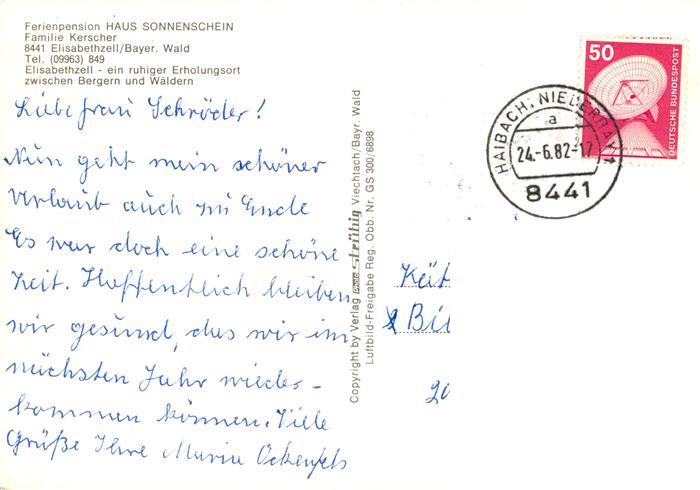 Ferienpension HAUS SONNENSCHEIN
Familie Kerscher
8441 Elisabethzell/Bayer. Wald
Tel. (09963) 849
Elisabethzell - ein ruhiger Erholungsort
zwischen Bergern und Wäldern
Liebe frau Schröder!
Nun geht mein schöner
Verlaub auch zu Ende
Es war doch eine schöne
Zeit. Hoffentlich bleiben
wir gesund, das wir im
nächsten Jahr wieder-
kommen können. Viele
Grüße Ihre Maria Ockenfels
Copyright by Verlag Ströhig Viechtach/Bayr. Wald
Luftbild-Freigabe Reg. Obb. Nr. GS 300/6898
50
DEUTSCHE BUNDESPOST
HAIBACH, NIEDERBAY 1
a
24.-6.82-17
8441
Kät
Bil
20